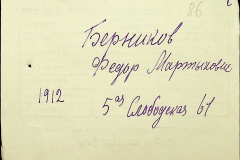 86
Берников
Федор Мартынович
1912
5ая Слободская 61